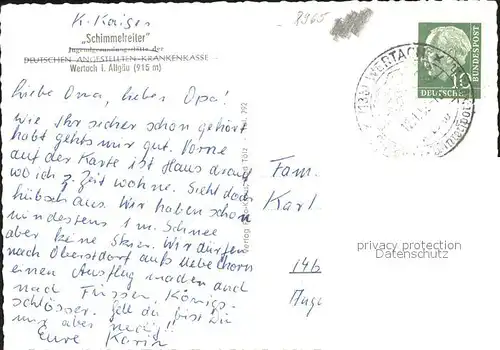 K. Kaiser
8965
„Schimmelreiter"
Jugendgenesungsstätte der
DEUTSCHEN ANGESTELLTEN-KRANKENKASSE
Wertach i. Allgäu (915 m)
Liebe Oma, lieber Opa!
Wie Ihr sicher schon gehört
habt gehts mir gut. Vorne
auf der Karte ist Haus drauf
wo ich z. Zeit wohne. Sieht doch
hübsch aus. Wir haben schon
mindestens 1 m. Schnee
aber keine Skier. Wir dürfen
nach Oberstdorf aufs Nebelhorn
einen Ausflug machen und
nach Füssen, Königs-
schlösser. Gell da bist Du
mir aber neidig!!
Eure Karin
Verlag Tölz 792
DEUTSCHE BUNDESPOST
10
WERTACH
Fam.
Karl
14b
privacy protection
Datenschutz